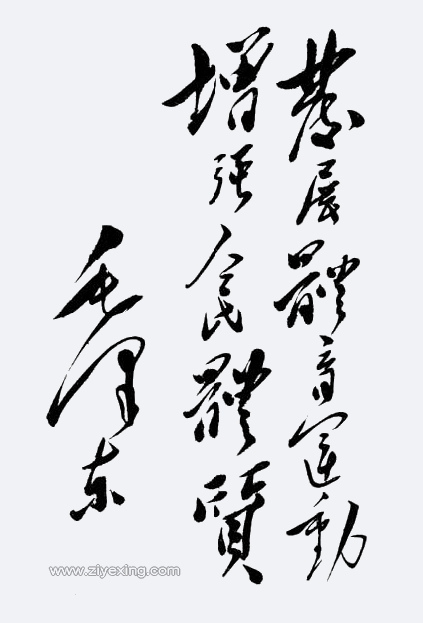 發展體育運動
增强人民體質
毛澤东
www.ziyexing.com